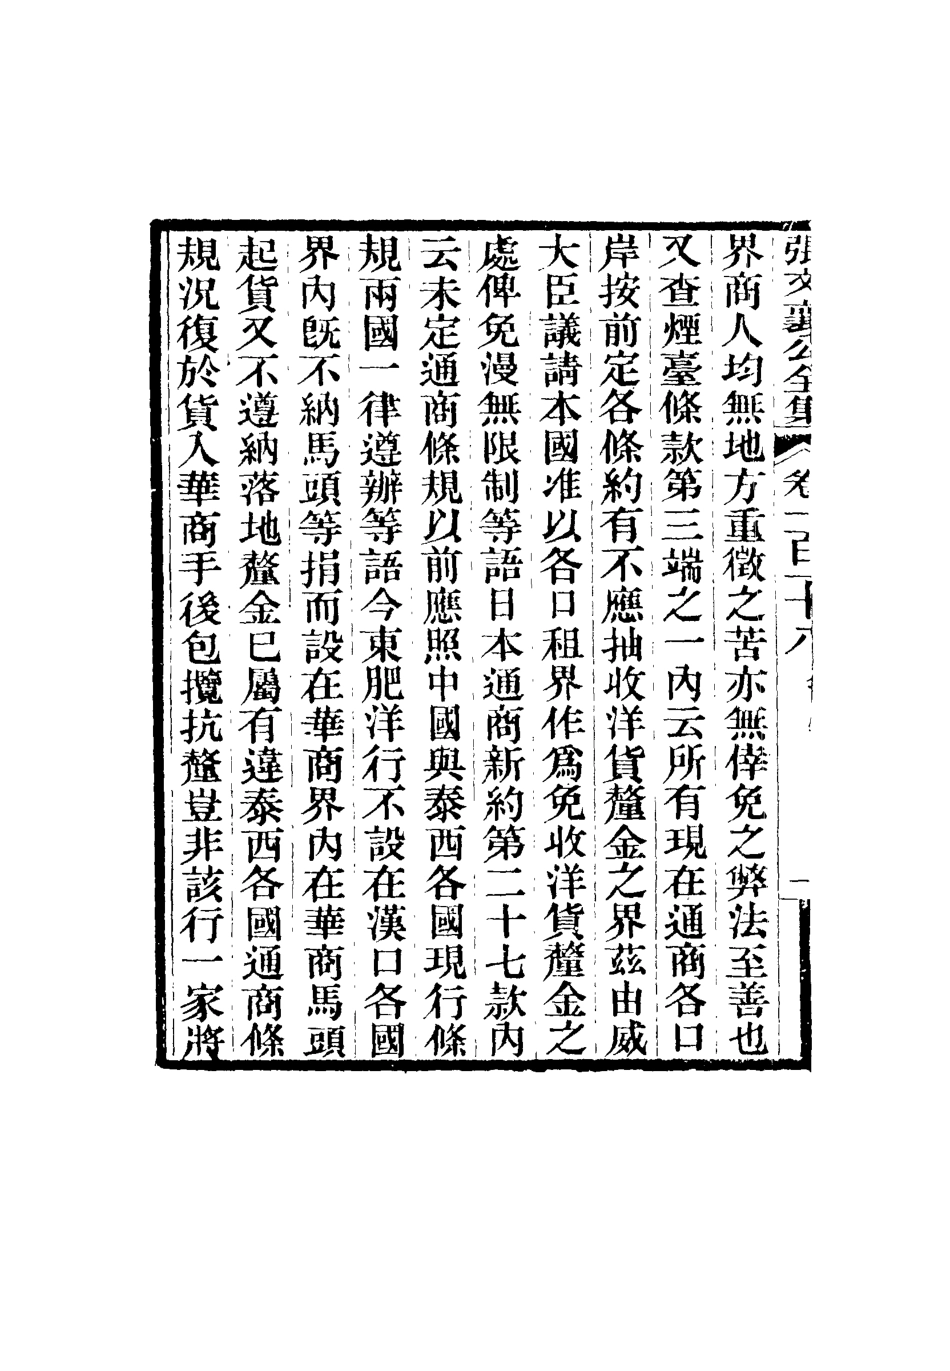 張文襄公全集 卷一百十八
界商人均無地方重徵之苦亦無倖免之弊法至善也
又查煙臺條款第三端之一內云所有現在通商各口
岸按前定各條約有不應抽收洋貨釐金之界茲由威
大臣議請本國准以各口租界作爲免收洋貨釐金之
處俾免漫無限制等語日本通商新約第二十七款內
云未定通商條規以前應照中國與泰西各國現行條
規兩國一律遵辦等語今東肥洋行不設在漢口各國
界內旣不納馬頭等捐而設在華商界內在華商馬頭
起貨又不遵納落地釐金已屬有違泰西各國通商條
規況復於貨入華商手後包攬抗釐豈非該行一家將